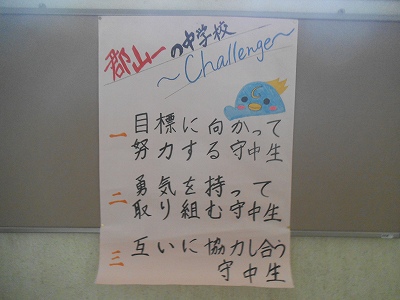 郡山一の中学校
～Challenge～
一 目標に向かって
努力する守中生
二 勇気を持って
取り組む守中生
三 互いに協力し合う
守中生